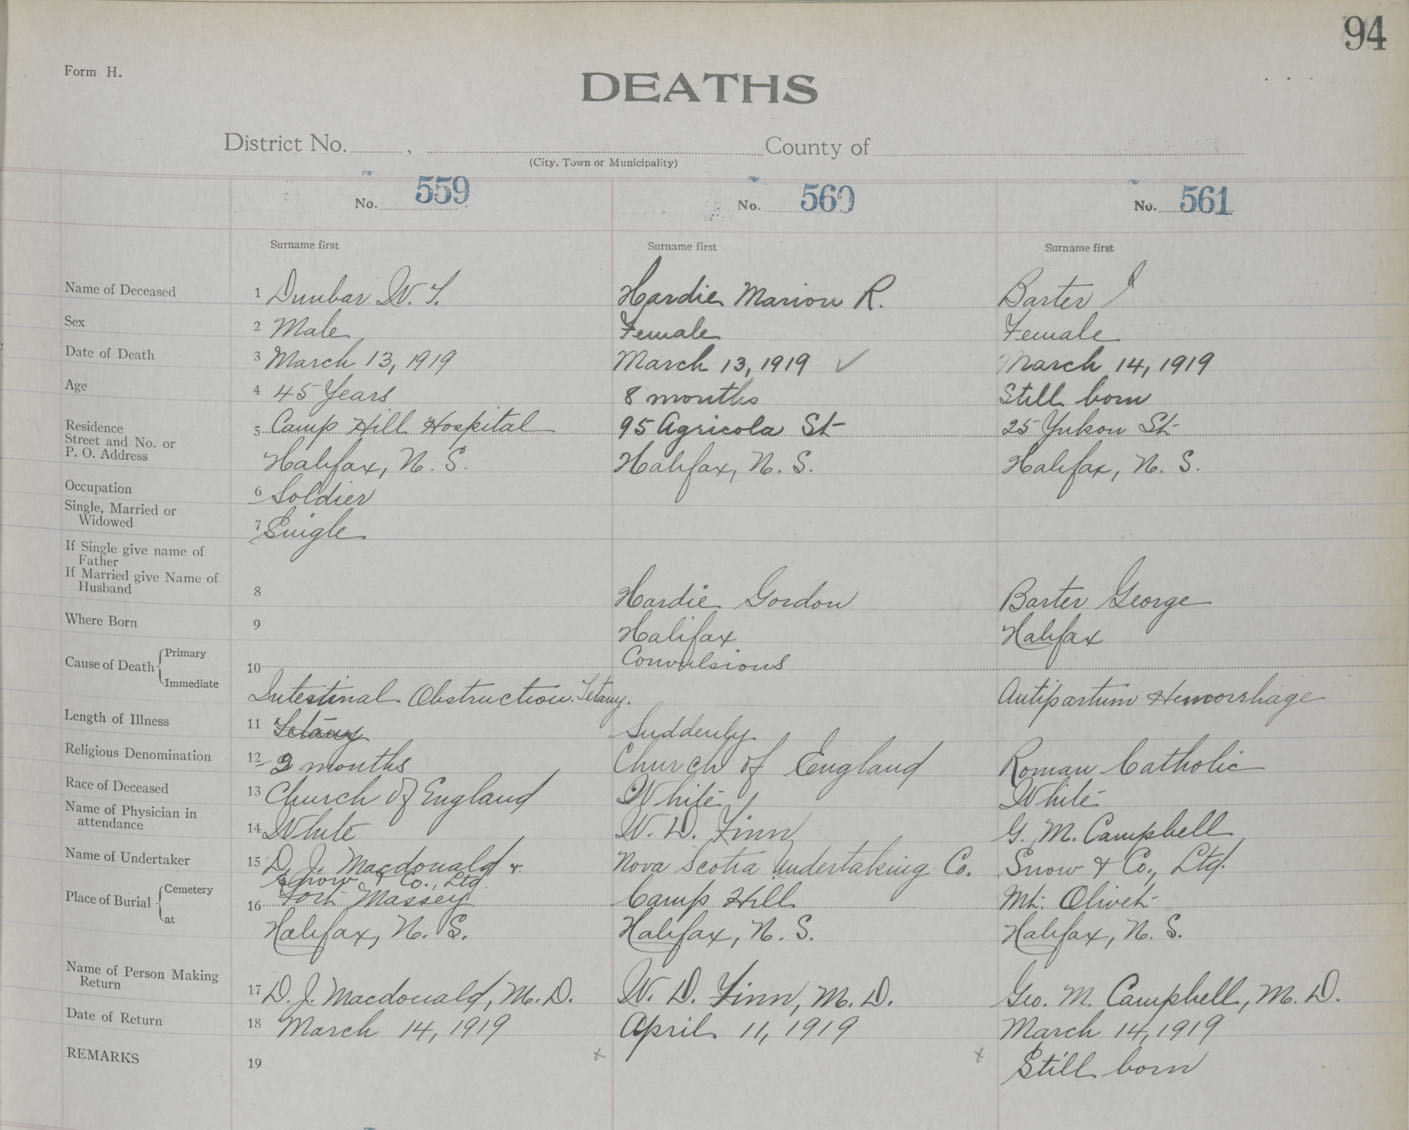 94
Form H.
DEATHS
District No. , County of
(City, Town or Municipality)
No. 559 No. 560 No. 561
Surname first Surname first Surname first
Name of Deceased 1 Dunbar W. T. Hardie Marion R. Barter
Sex 2 Male Female Female
Date of Death 3 March 13, 1919 March 13, 1919 ✓ March 14, 1919
Age 4 45 Years 8 months Still born
Residence
Street and No. or 5 Camp Hill Hospital 95 Agricola St 25 Yukon St
P. O. Address Halifax, N. S. Halifax, N. S. Halifax, N. S.
Occupation 6 Soldier
Single, Married or
Widowed 7 Single
If Single give name of
Father
If Married give Name of
Husband 8 Hardie Gordon Barter George
Where Born 9 Halifax Halifax
Cause of Death { Primary 10 Convulsions
Immediate Intestinal Obstruction. Tetany. Antipartum Hemorrhage
Length of Illness 11 Tetany Suddenly
Religious Denomination 12 2 months Church of England Roman Catholic
Race of Deceased 13 Church of England White White
Name of Physician in
attendance 14 White W. D. Finn G. M. Campbell
Name of Undertaker 15 D. J. Macdonald + Nova Scotia Undertaking Co. Snow & Co., Ltd.
Snow & Co., Ltd.
Place of Burial { Cemetery 16 Fort Massey Camp Hill Mt. Olivet
at Halifax, N. S. Halifax, N. S. Halifax, N. S.
Name of Person Making
Return 17 D. J. Macdonald, M. D. W. D. Finn, M. D. Geo. M. Campbell, M. D.
Date of Return 18 March 14, 1919 April 11, 1919 March 14, 1919
REMARKS 19 x x Still born